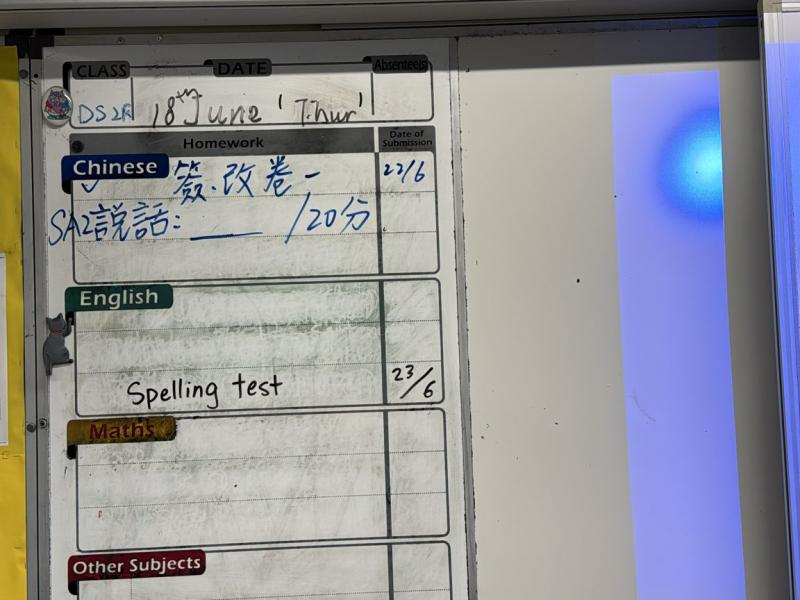 CLASS DATE Absentee(s)
DS2R 18th June 'Thur'
Homework Date of Submission
Chinese 簽.改卷一 22/6
SA2説話: ____ /20分
English
Spelling test 23/6
Maths
Other Subjects